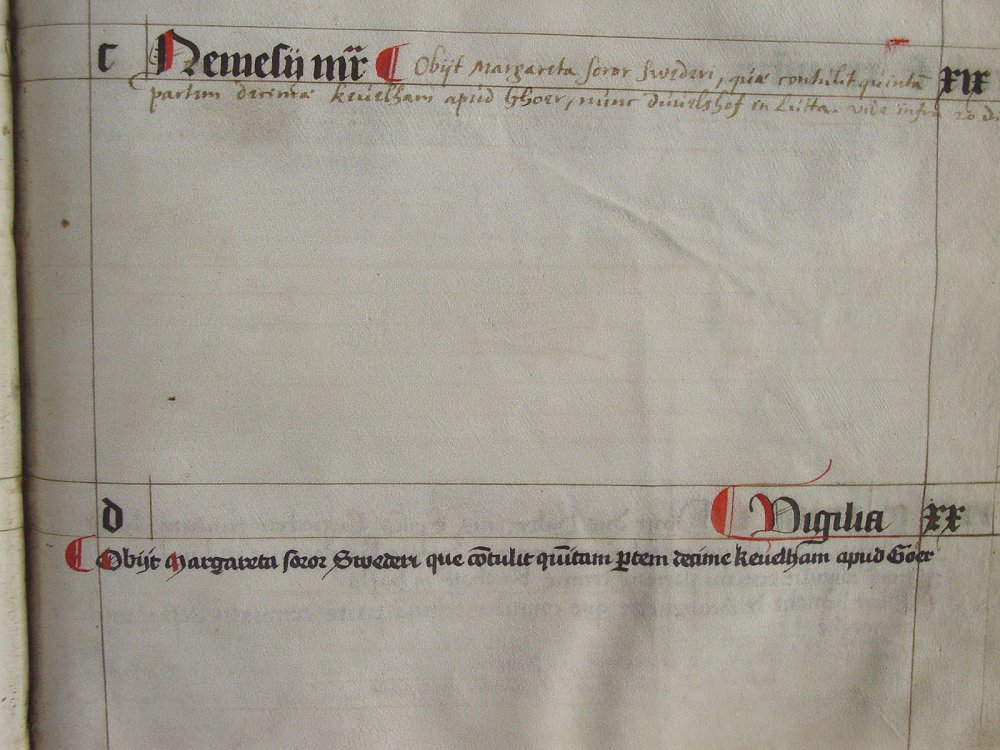 c Nemesii mr̄r ¶ Obijt Margareta soror Swederi, quæ contulit quintā XIX
partem decimæ keuelham apud Ghoer, nunc Duvelshof in Lutta. vide infra 20 di
d ¶ Vigilia XX
¶ Obijt Margareta soror Swederi que cōtulit qūitam ꝑtem decime keuelhām apud Goer